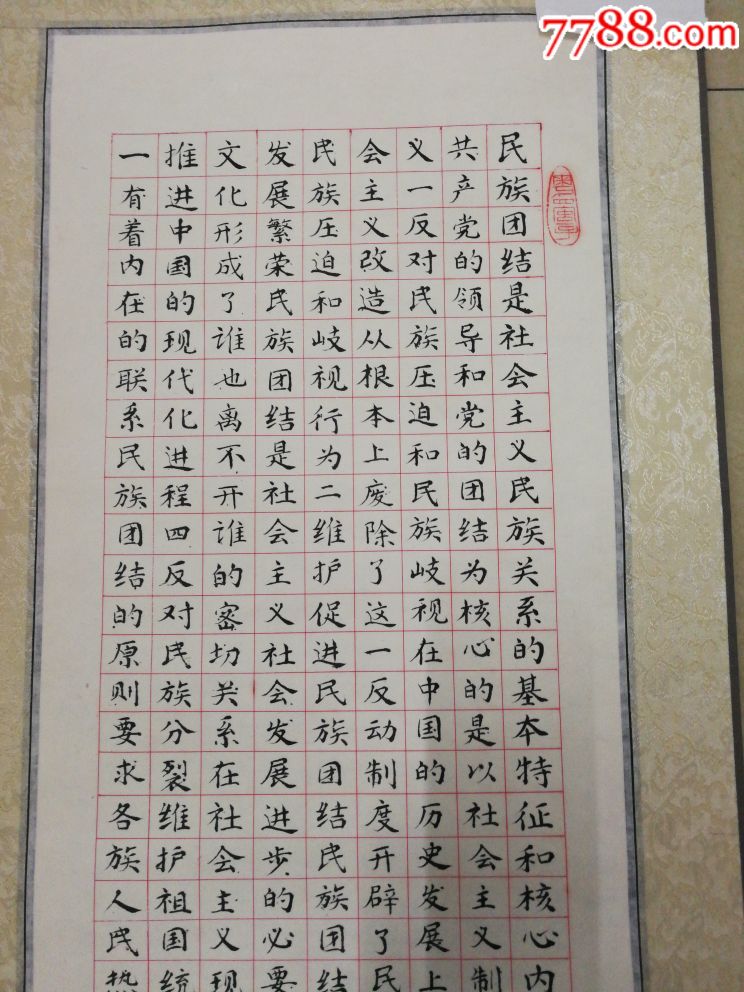 7788.com
民族团结是社会主义民族关系的基本特征和核心内
共产党的领导和党的团结为核心的是以社会主义制
义一反对民族压迫和民族岐视在中国的历史发展上
会主义改造从根本上废除了这一反动制度开辟了民
民族压迫和岐视行为二维护促进民族团结民族团结
发展繁荣民族团结是社会主义社会发展进步的必要
文化形成了谁也离不开谁的密切关系在社会主义现
推进中国的现代化进程四反对民族分裂维护祖国统
一有着内在的联系民族团结的原则要求各族人民热